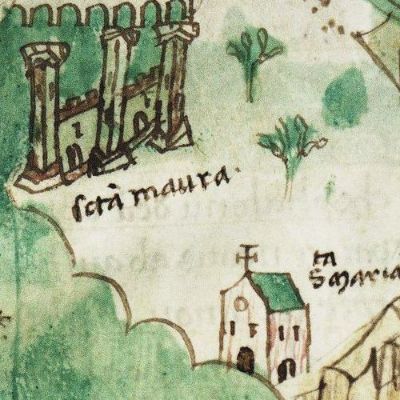 sctā maura.
ta
S maria